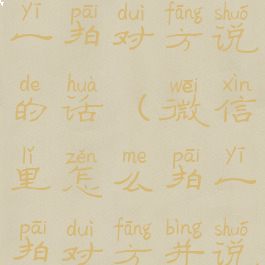 yī pāi duì fāng shuō
一拍对方说
de huà wēi xìn
的话（微信
lǐ zěn me pāi yī
里怎么拍一
pāi duì fāng bìng shuō
拍对方并说